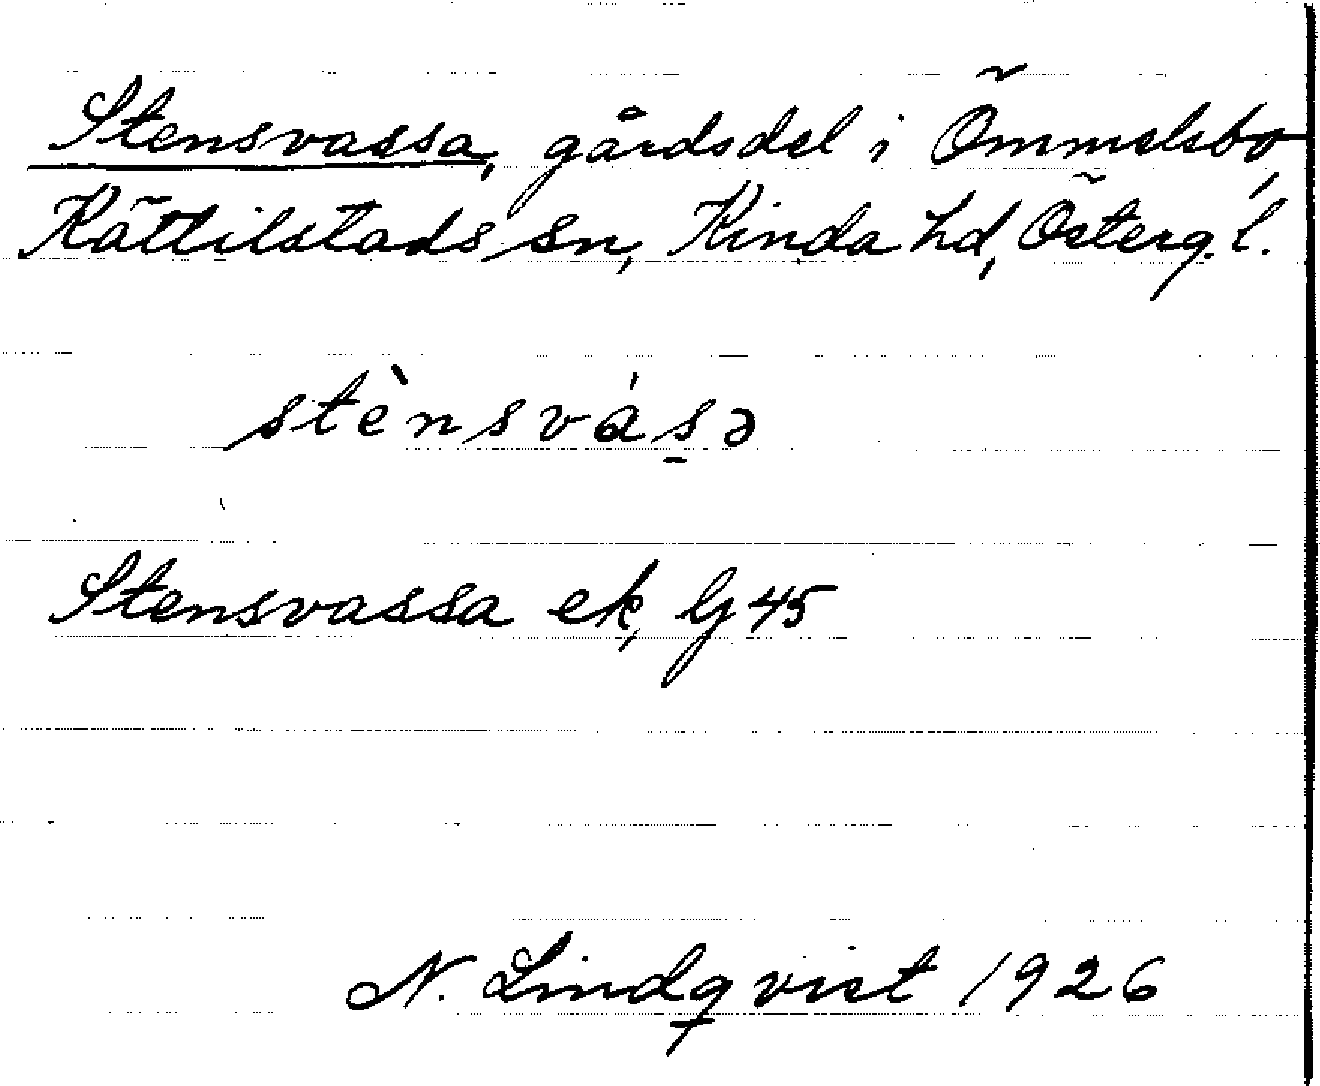 Stensvassa, gårdsdel i Ömmelsbo
Kättilstads sn, Kinda hd, Österg. l.
stènsvásə
Stensvassa ek, G 45
N. Lindqvist 1926